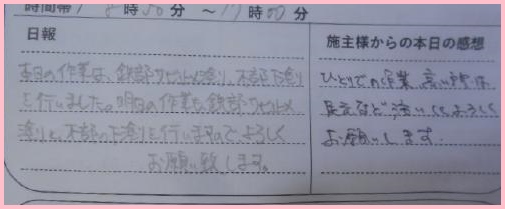 時間帯 時30分 ～17時00分
日報
本日の作業は、鉄部サビドメ塗り、木部下塗り
を行いました。明日の作業も鉄部サビドメ
塗りと、木部の下塗りを行いますのでよろしく
お願い致します。
施主様からの本日の感想
ひとりでの作業、高い所は
足元など気いくよろしく
お願いします。